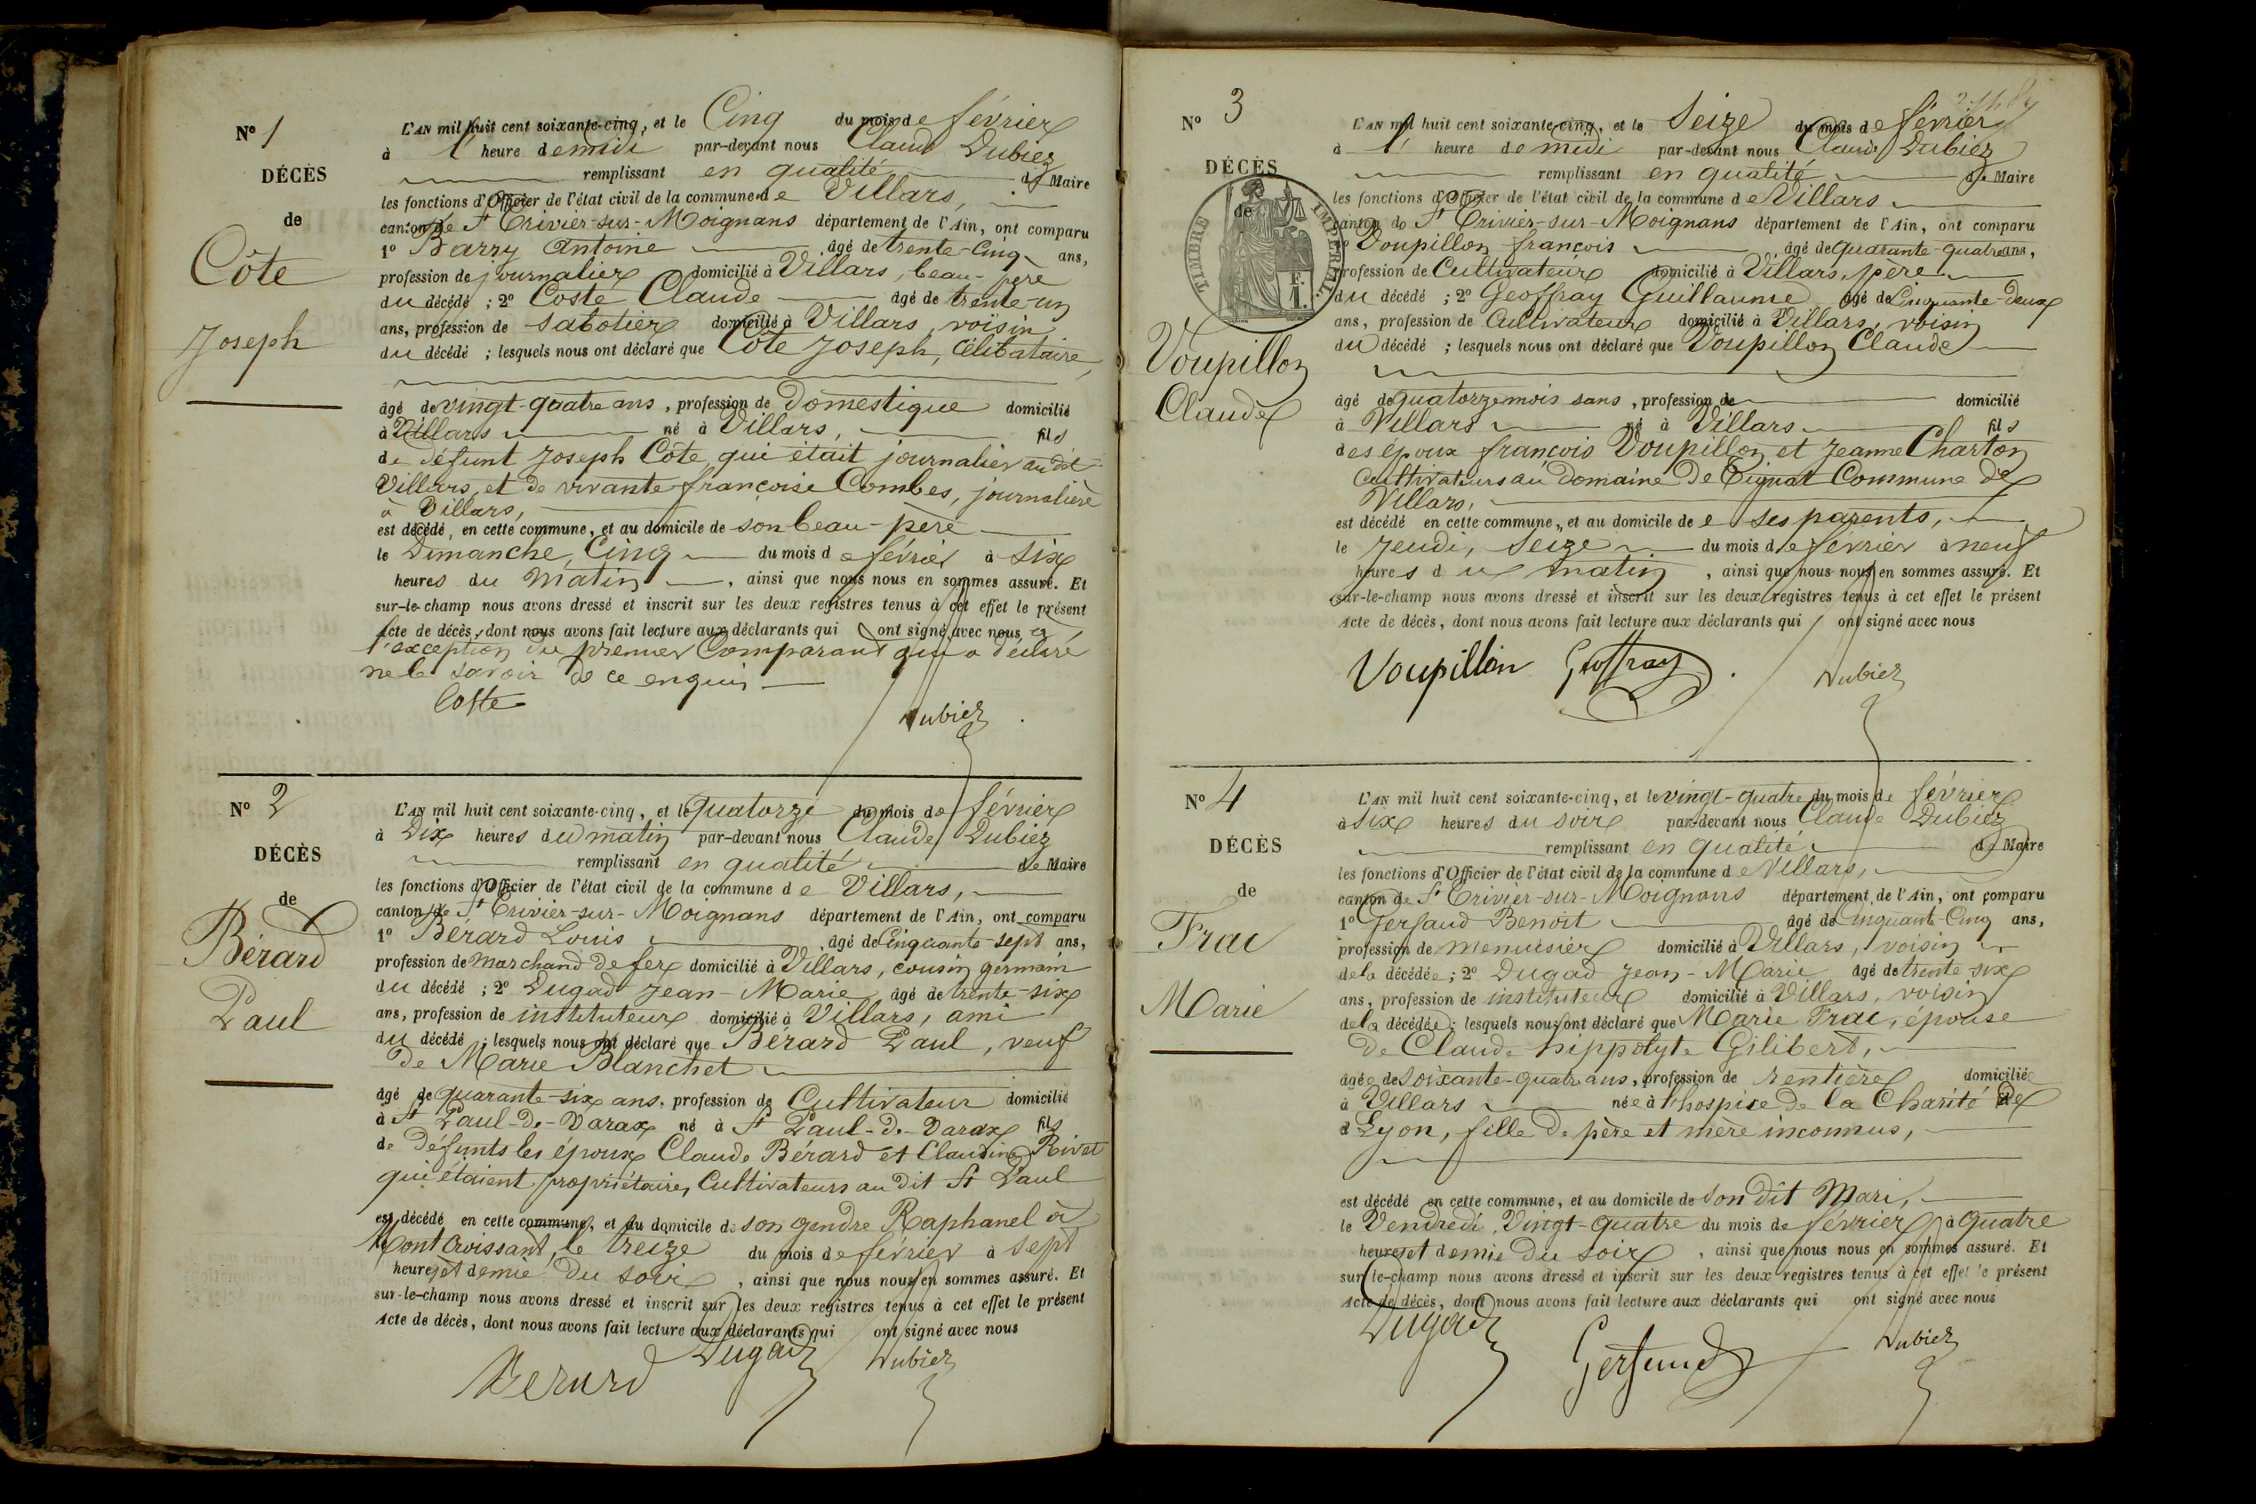 N° 1
DÉCÈS
de
Côte
Joseph
L'AN mil huit cent soixante-cinq, et le Cinq du mois de février
à 1 heure de midi par-devant nous Claude Dubiez
remplissant en qualité de Maire
les fonctions d'Officier de l'état civil de la commune de Villars,
canton de St Trivier-sur-Moignans département de l'Ain, ont comparu
1° Barry Antoine âgé de trente-cinq ans,
profession de journalier domicilié à Villars, beau-père
du décédé ; 2° Coste Claude âgé de trente-un
ans, profession de sabotier domicilié à Villars, voisin
du décédé ; lesquels nous ont déclaré que Côte Joseph, célibataire,
âgé de vingt-quatre ans, profession de domestique domicilié
à Villars né à Villars, fils
de défunt Joseph Côte qui était journalier au dit
Villars, et de vivante françoise Combes, journalière
à Villars,
est décédé, en cette commune, et au domicile de son beau-père
le Dimanche, Cinq du mois de février à six
heures du matin, ainsi que nous nous en sommes assuré. Et
sur-le-champ nous avons dressé et inscrit sur les deux registres tenus à cet effet le présent
Acte de décès, dont nous avons fait lecture aux déclarants qui ont signé avec nous, à
l'exception du premier Comparant qui a déclaré
ne le savoir de ce enquis
Coste
Dubiez
N° 2
DÉCÈS
de
Bérard
Paul
L'AN mil huit cent soixante-cinq, et le quatorze du mois de février
à Dix heures du matin par-devant nous Claude Dubiez
remplissant en qualité de Maire
les fonctions d'Officier de l'état civil de la commune de Villars,
canton de St Trivier-sur-Moignans département de l'Ain, ont comparu
1° Bérard Louis âgé de Cinquante-sept ans,
profession de marchand de fer domicilié à Villars, cousin germain
du décédé ; 2° Dugad Jean-Marie âgé de trente-six
ans, profession de instituteur domicilié à Villars, ami
du décédé ; lesquels nous ont déclaré que Bérard Paul, veuf
de Marie Blanchet
âgé de quarante-six ans, profession de Cultivateur domicilié
à St Paul-de-Varax né à St Paul-de-Varax fils
de défunts les époux Claude Bérard et Claudine Rivat
qui étaient propriétaires Cultivateurs au dit St Paul
est décédé en cette commune, et au domicile de son gendre Raphanel à
Mont Croissant, le treize du mois de février à sept
heures et demie du soir, ainsi que nous nous en sommes assuré. Et
sur-le-champ nous avons dressé et inscrit sur les deux registres tenus à cet effet le présent
Acte de décès, dont nous avons fait lecture aux déclarants qui ont signé avec nous
Berard Dugad Dubiez
N° 3
DÉCÈS
de
TIMBRE IMPÉRIAL.
Voupillon
Claude
L'AN mil huit cent soixante-cinq, et le Seize du mois de février
à 1 heure de midi par-devant nous Claude Dubiez
remplissant en qualité de Maire
les fonctions d'Officier de l'état civil de la commune de Villars
canton de St Trivier-sur-Moignans département de l'Ain, ont comparu
1° Voupillon françois âgé de quarante-quatre ans,
profession de Cultivateur domicilié à Villars, père
du décédé ; 2° Geoffray Guillaume âgé de Cinquante-deux
ans, profession de Cultivateur domicilié à Villars, voisin
du décédé ; lesquels nous ont déclaré que Voupillon Claude
âgé de quatorze mois sans, profession de domicilié
à Villars né à Villars fils
des époux françois Voupillon et Jeanne Charton
cultivateurs au Domaine de Tignat Commune de
Villars,
est décédé en cette commune, et au domicile de ses parents,
le Jeudi, seize du mois de février à neuf
heures du matin, ainsi que nous nous en sommes assuré. Et
sur-le-champ nous avons dressé et inscrit sur les deux registres tenus à cet effet le présent
Acte de décès, dont nous avons fait lecture aux déclarants qui ont signé avec nous
Voupillon Geoffray Dubiez
N° 4
DÉCÈS
de
Frac
Marie
L'AN mil huit cent soixante-cinq, et le vingt-quatre du mois de février
à six heures du soir par-devant nous Claude Dubiez
remplissant en qualité de Maire
les fonctions d'Officier de l'état civil de la commune de Villars,
canton de St Trivier-sur-Moignans département de l'Ain, ont comparu
1° Gersaud Benoit âgé de Cinquante-Cinq ans,
profession de menuisier domicilié à Villars, voisin
de la décédée ; 2° Dugad Jean-Marie âgé de trente-six
ans, profession de instituteur domicilié à Villars, voisin
de la décédée ; lesquels nous ont déclaré que Marie Frac, épouse
de Claude hippolyte Gilibert,
âgée de soixante-quatre ans, profession de rentière domiciliée
à Villars née à l'hospice de la Charité de
à Lyon, fille de père et mère inconnus,
est décédé en cette commune, et au domicile de son dit Mari,
le Vendredi, Vingt-quatre du mois de février à quatre
heures et demie du soir, ainsi que nous nous en sommes assuré. Et
sur-le-champ nous avons dressé et inscrit sur les deux registres tenus à cet effet le présent
Acte de décès, dont nous avons fait lecture aux déclarants qui ont signé avec nous
Dugad Gersaud Dubiez